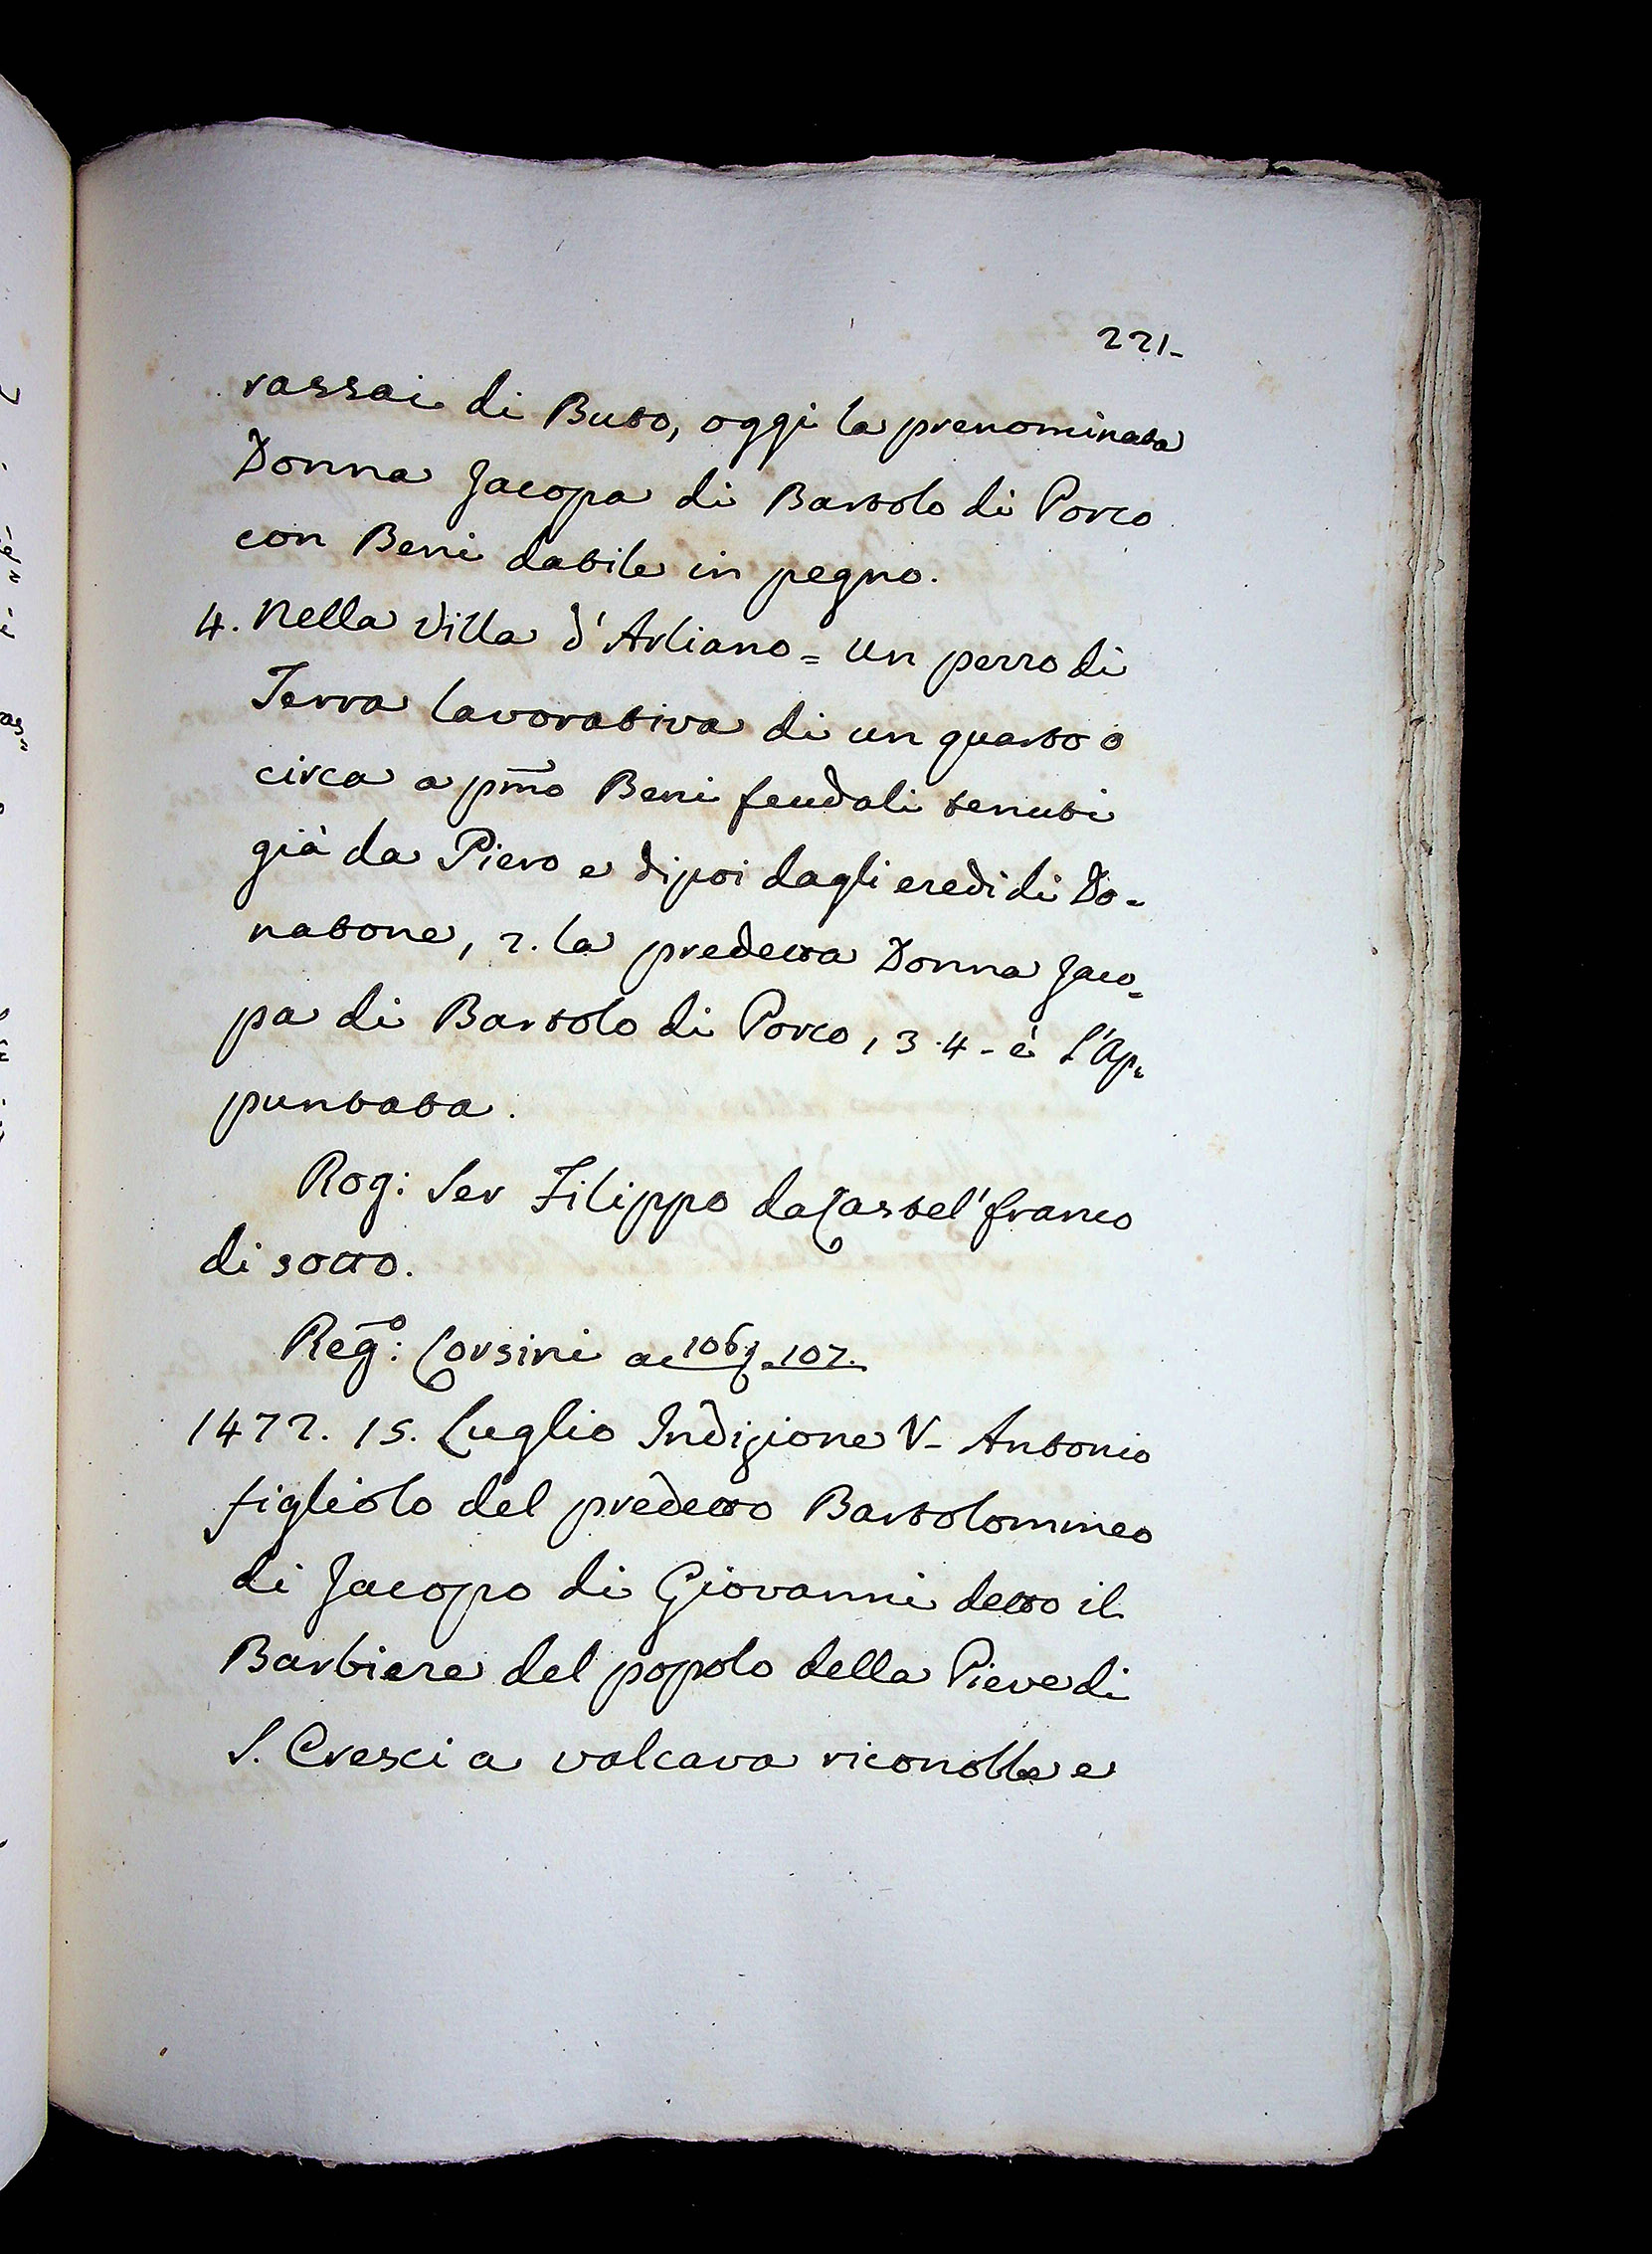 221-
rassai di Buto, oggi la prenominata
Donna Jacopa di Bartolo di Porco
con Beni dabile in pegno.
4. Nella Villa d'Arliano = un pezzo di
Terra lavorativa di un quarto o
circa a pmo Beni feudali tenuti
già da Piero e dipoi dagli eredi di Do=
natone, 2. la predetta Donna Jaco=
pa di Bartolo di Porco, 3.4- è l'Ap=
puntata.
Rog: Ser Filippo da Castel'franco
di sotto.
Regº: Corsini ac 106 e 107.
1472. 15. Luglio Indizione V- Antonio
figliolo del predetto Bartolommeo
di Jacopo di Giovanni detto il
Barbiere del popolo della Pieve di
S. Cresci a valcava riconobbe e